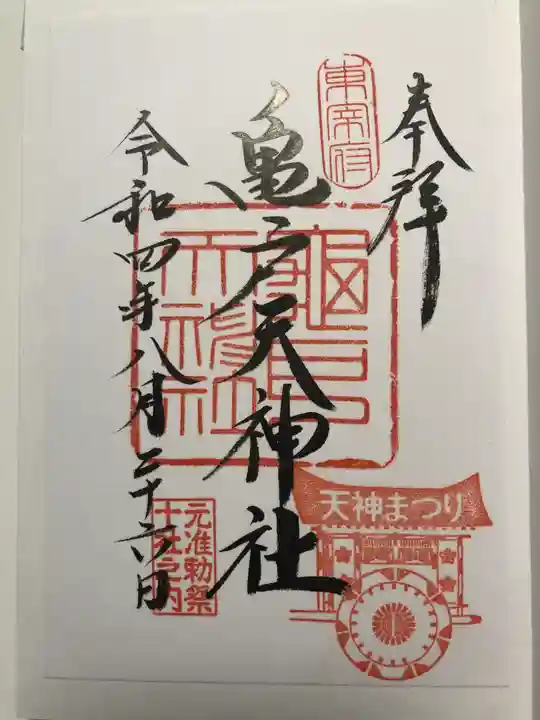 奉拝
東宰府
亀戸天神社
亀戸天神社
天神まつり
令和四年八月二十六日
元准勅祭
十社之内